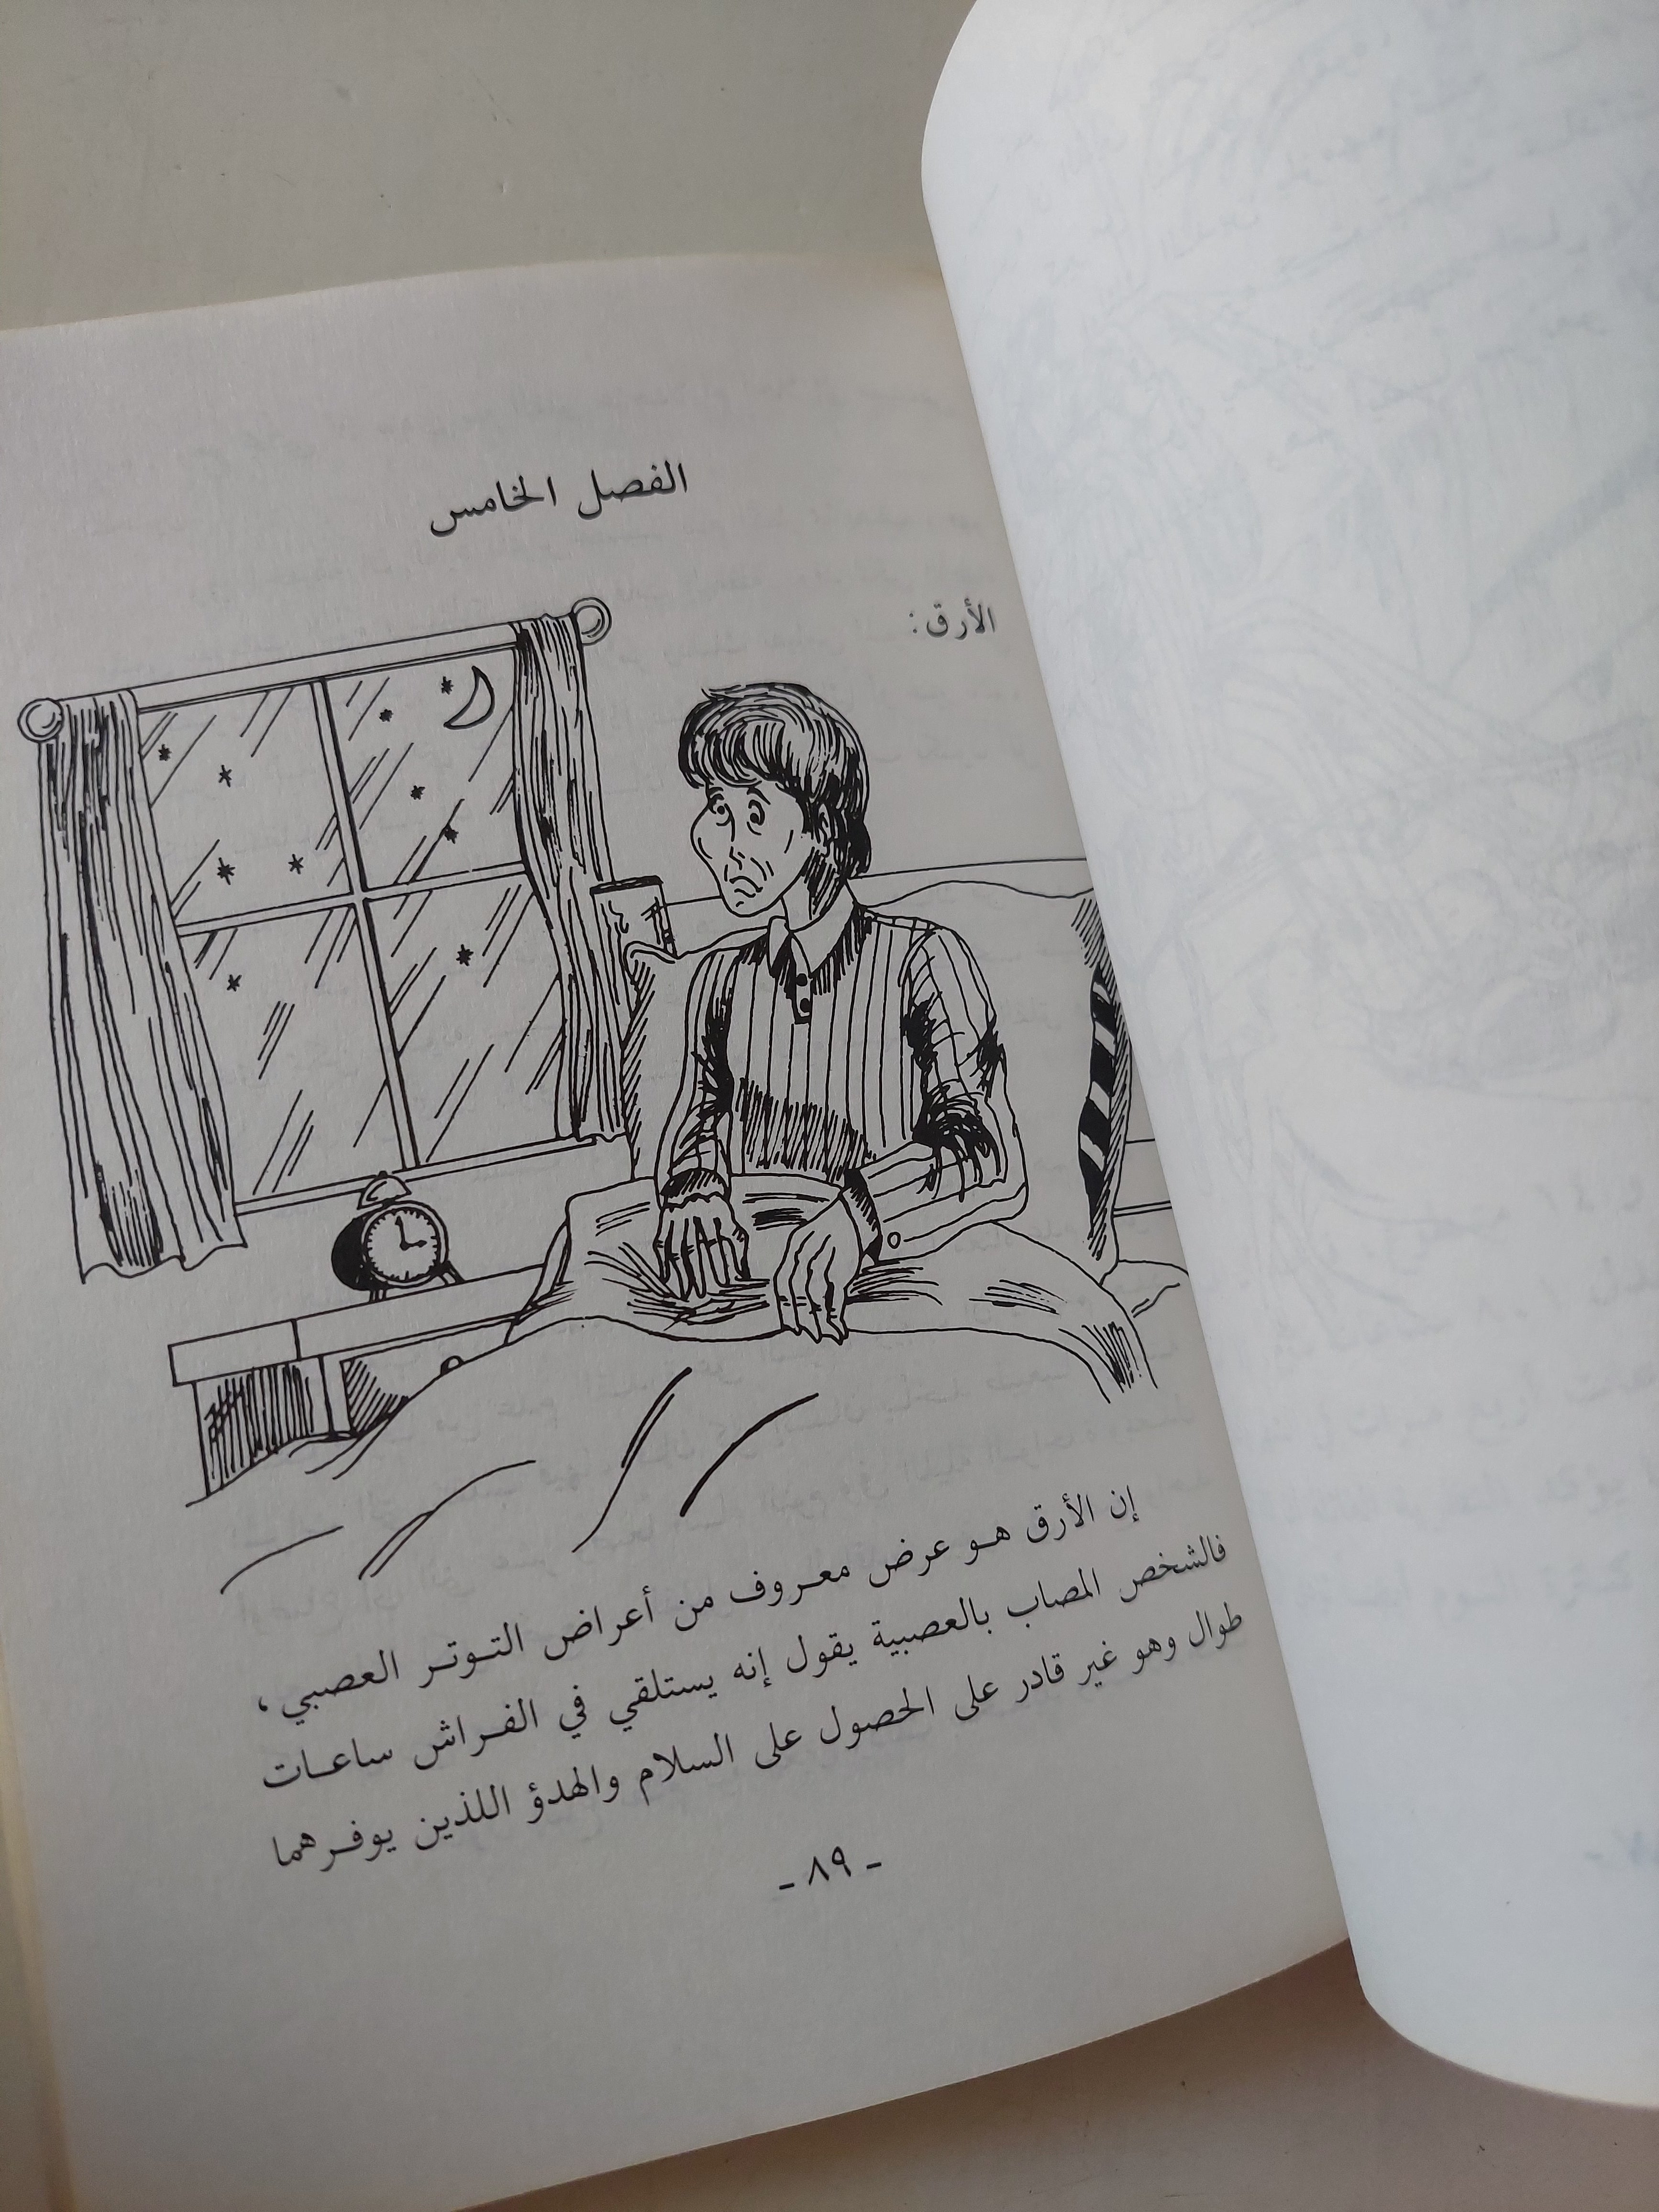 الفصل الخامس
الأرق :
إن الأرق هـو عرض معـروف من أعراض التـوتـر العصبي ،
فالشخص المصاب بالعصبية يقول إنه يستلقي في الفـراش ساعـات
طوال وهو غير قادر على الحصول على السلام والهدؤ اللذين يوفـرهما
- ٨٩ -